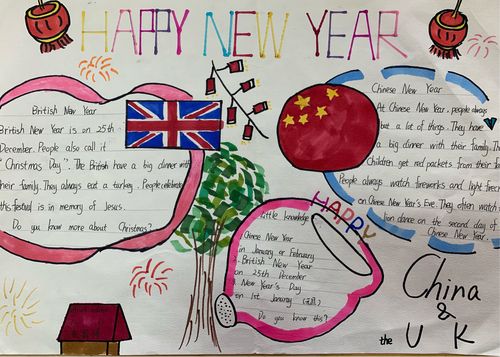 HAPPY NEW YEAR
British New Year
British New Year is on 25th
December. People also call it
"Christmas Day". The British have a big dinner with
their family. They always eat a turkey. People celebrate
this festival is in memory of Jesus.
Do you know more about Christmas?
Chinese New Year
At Chinese New Year, people always
but a lot of things. They have
a big dinner with their family. Th
Children get red packets from their
People always watch fireworks and light firec
on Chinese New Year's Eve. They often watch
lion dance on the second day of
Chinese New Year.
HAPPY
little knowledge
Chinese New Year
in January or February
British New Year
on 25th December
New Year's Day
on 1st January
Do you know this?
China
&
the U K